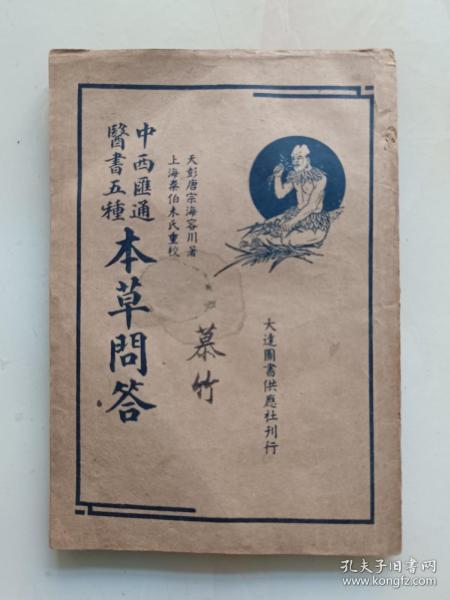 中西匯通
醫書五種
本草問答
天彭唐宗海容川著
上海秦伯未氏重校
慕竹
大達圖書供應社刊行
孔夫子旧书网
www.kongfz.com